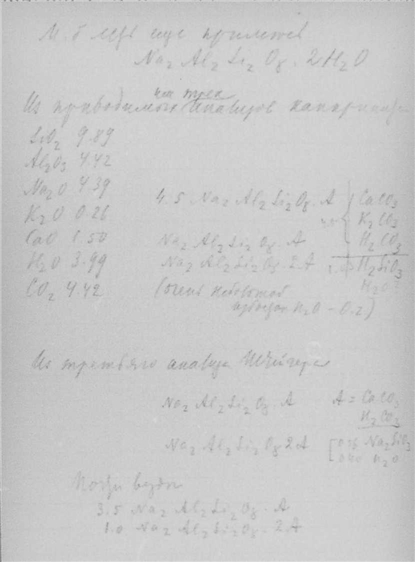 М. б. здесь еще примесь
Na₂ Al₂ Si₂ O₈ · 2H₂O
Из приводимого им трех анализов канкринита
SiO₂ 9.89
Al₂O₃ 4.42
Na₂O 4.39
K₂O 0.26
CaO 1.50
H₂O 3.99
CO₂ 4.42
4.5 Na₂ Al₂ Si₂ O₈ · A
Na₂ Al₂ Si₂ O₈ · A
Na₂ Al₂ Si₂ O₈ · 2A
CaCO₃
K₂CO₃
H₂CO₃
H₂SiO₃
H₂O
(очень небольшой
избыток H₂O – 0.2)
Из третьего анализа
Na₂ Al₂ Si₂ O₈ A
A = CaCO₃
H₂CO₃
Na₂ Al₂ Si₂ O₈ 2A
Na₂SiO₃
H₂O
3.5 Na₂ Al₂ Si₂ O₈ · A
1.0 Na₂ Al₂ Si₂ O₈ · 2A